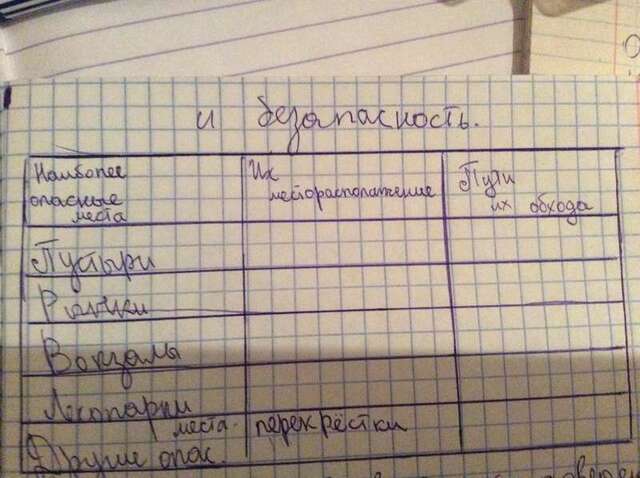 и безопасность.
Наиболее
опасные
места
Их
месторасположение
Пути
их обхода
Пустыри
Рынки
Вокзалы
Лесопарки
Другие опас.
места.
перекрёстки